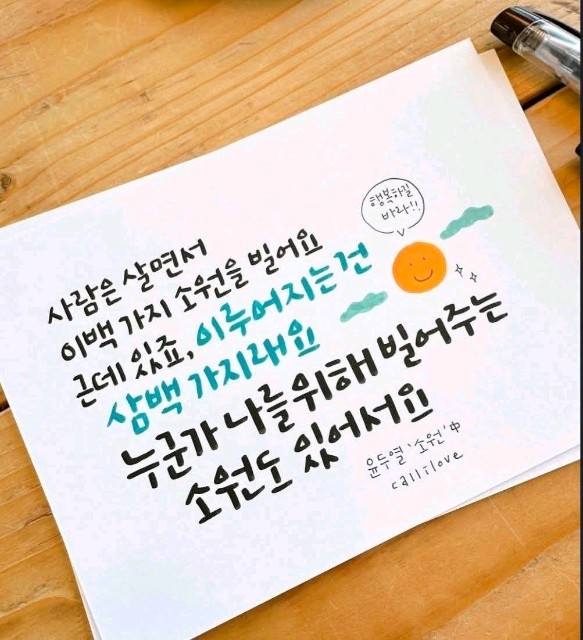 행복하길
바라!!
사람은 살면서
이백 가지 소원을 빌어요
근데 있죠, 이루어지는 건
삼백 가지래요
누군가 나를 위해 빌어주는
소원도 있어서요
윤두열 '소원' 中
callilove